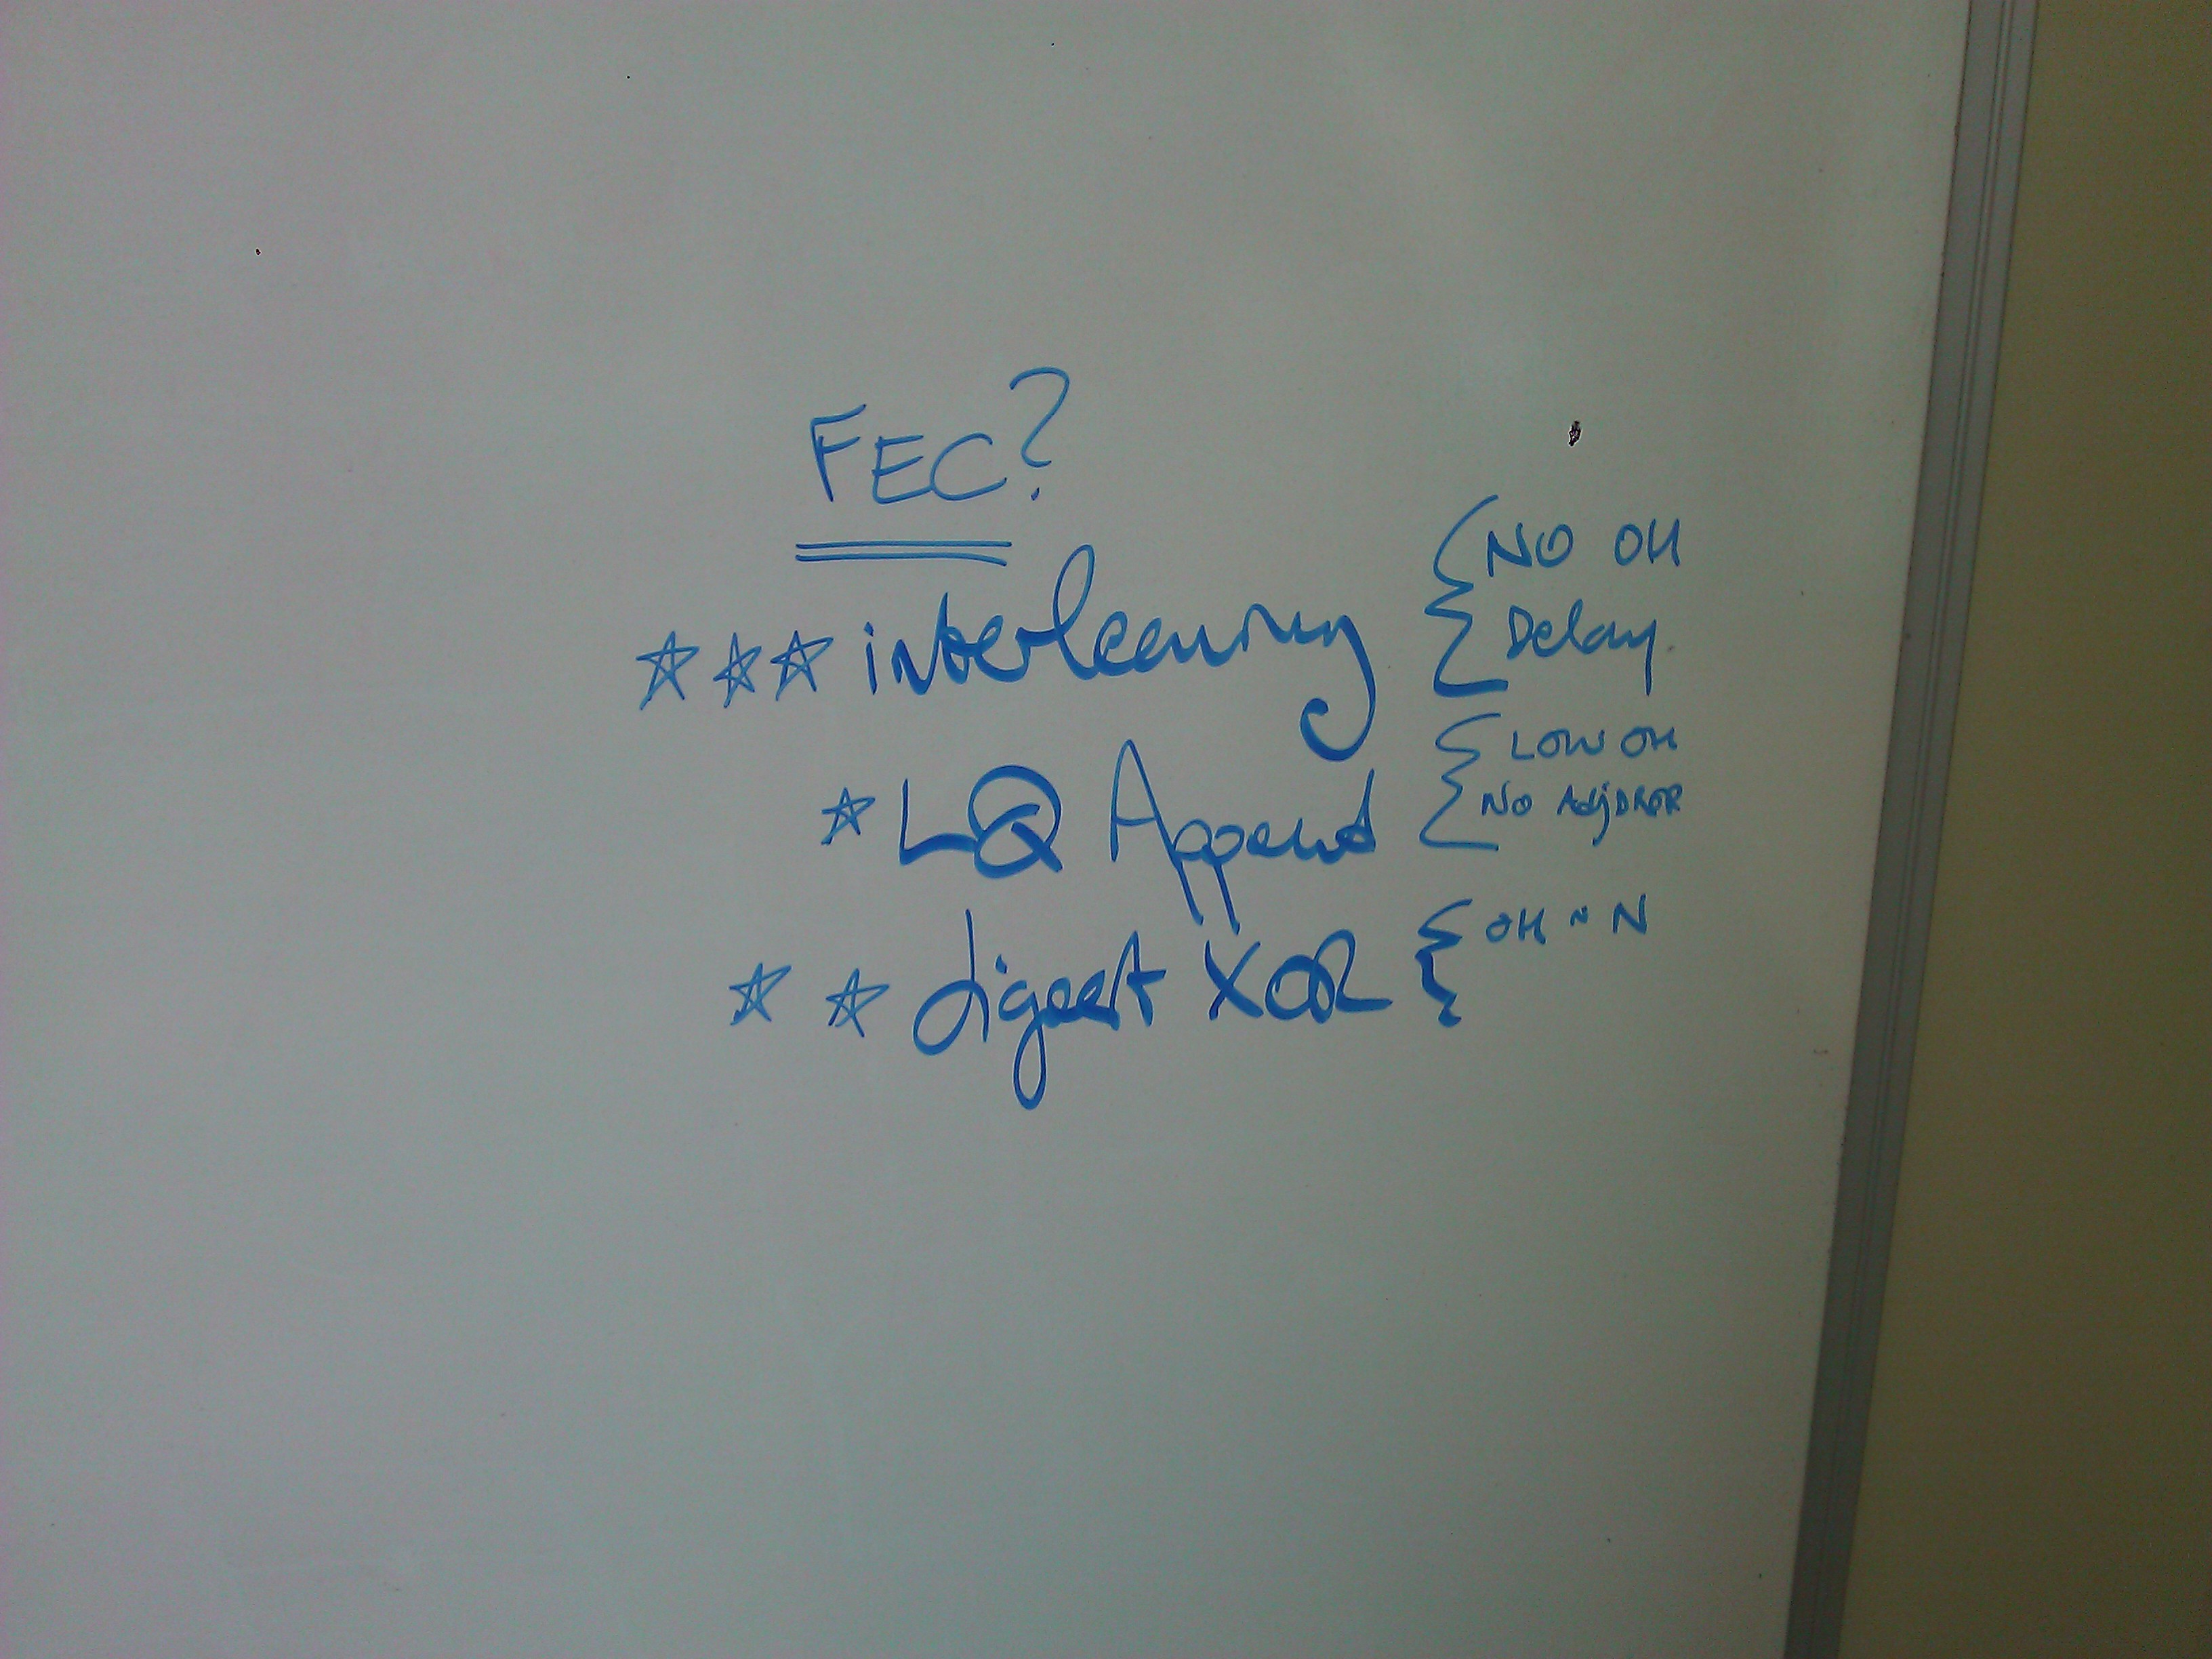 FEC?
☆☆☆ interleaving { NO OH
Delay.
☆ LQ Append { LOW OH
NO AdjDROP
☆ ☆ digest XOR { OH ~ N